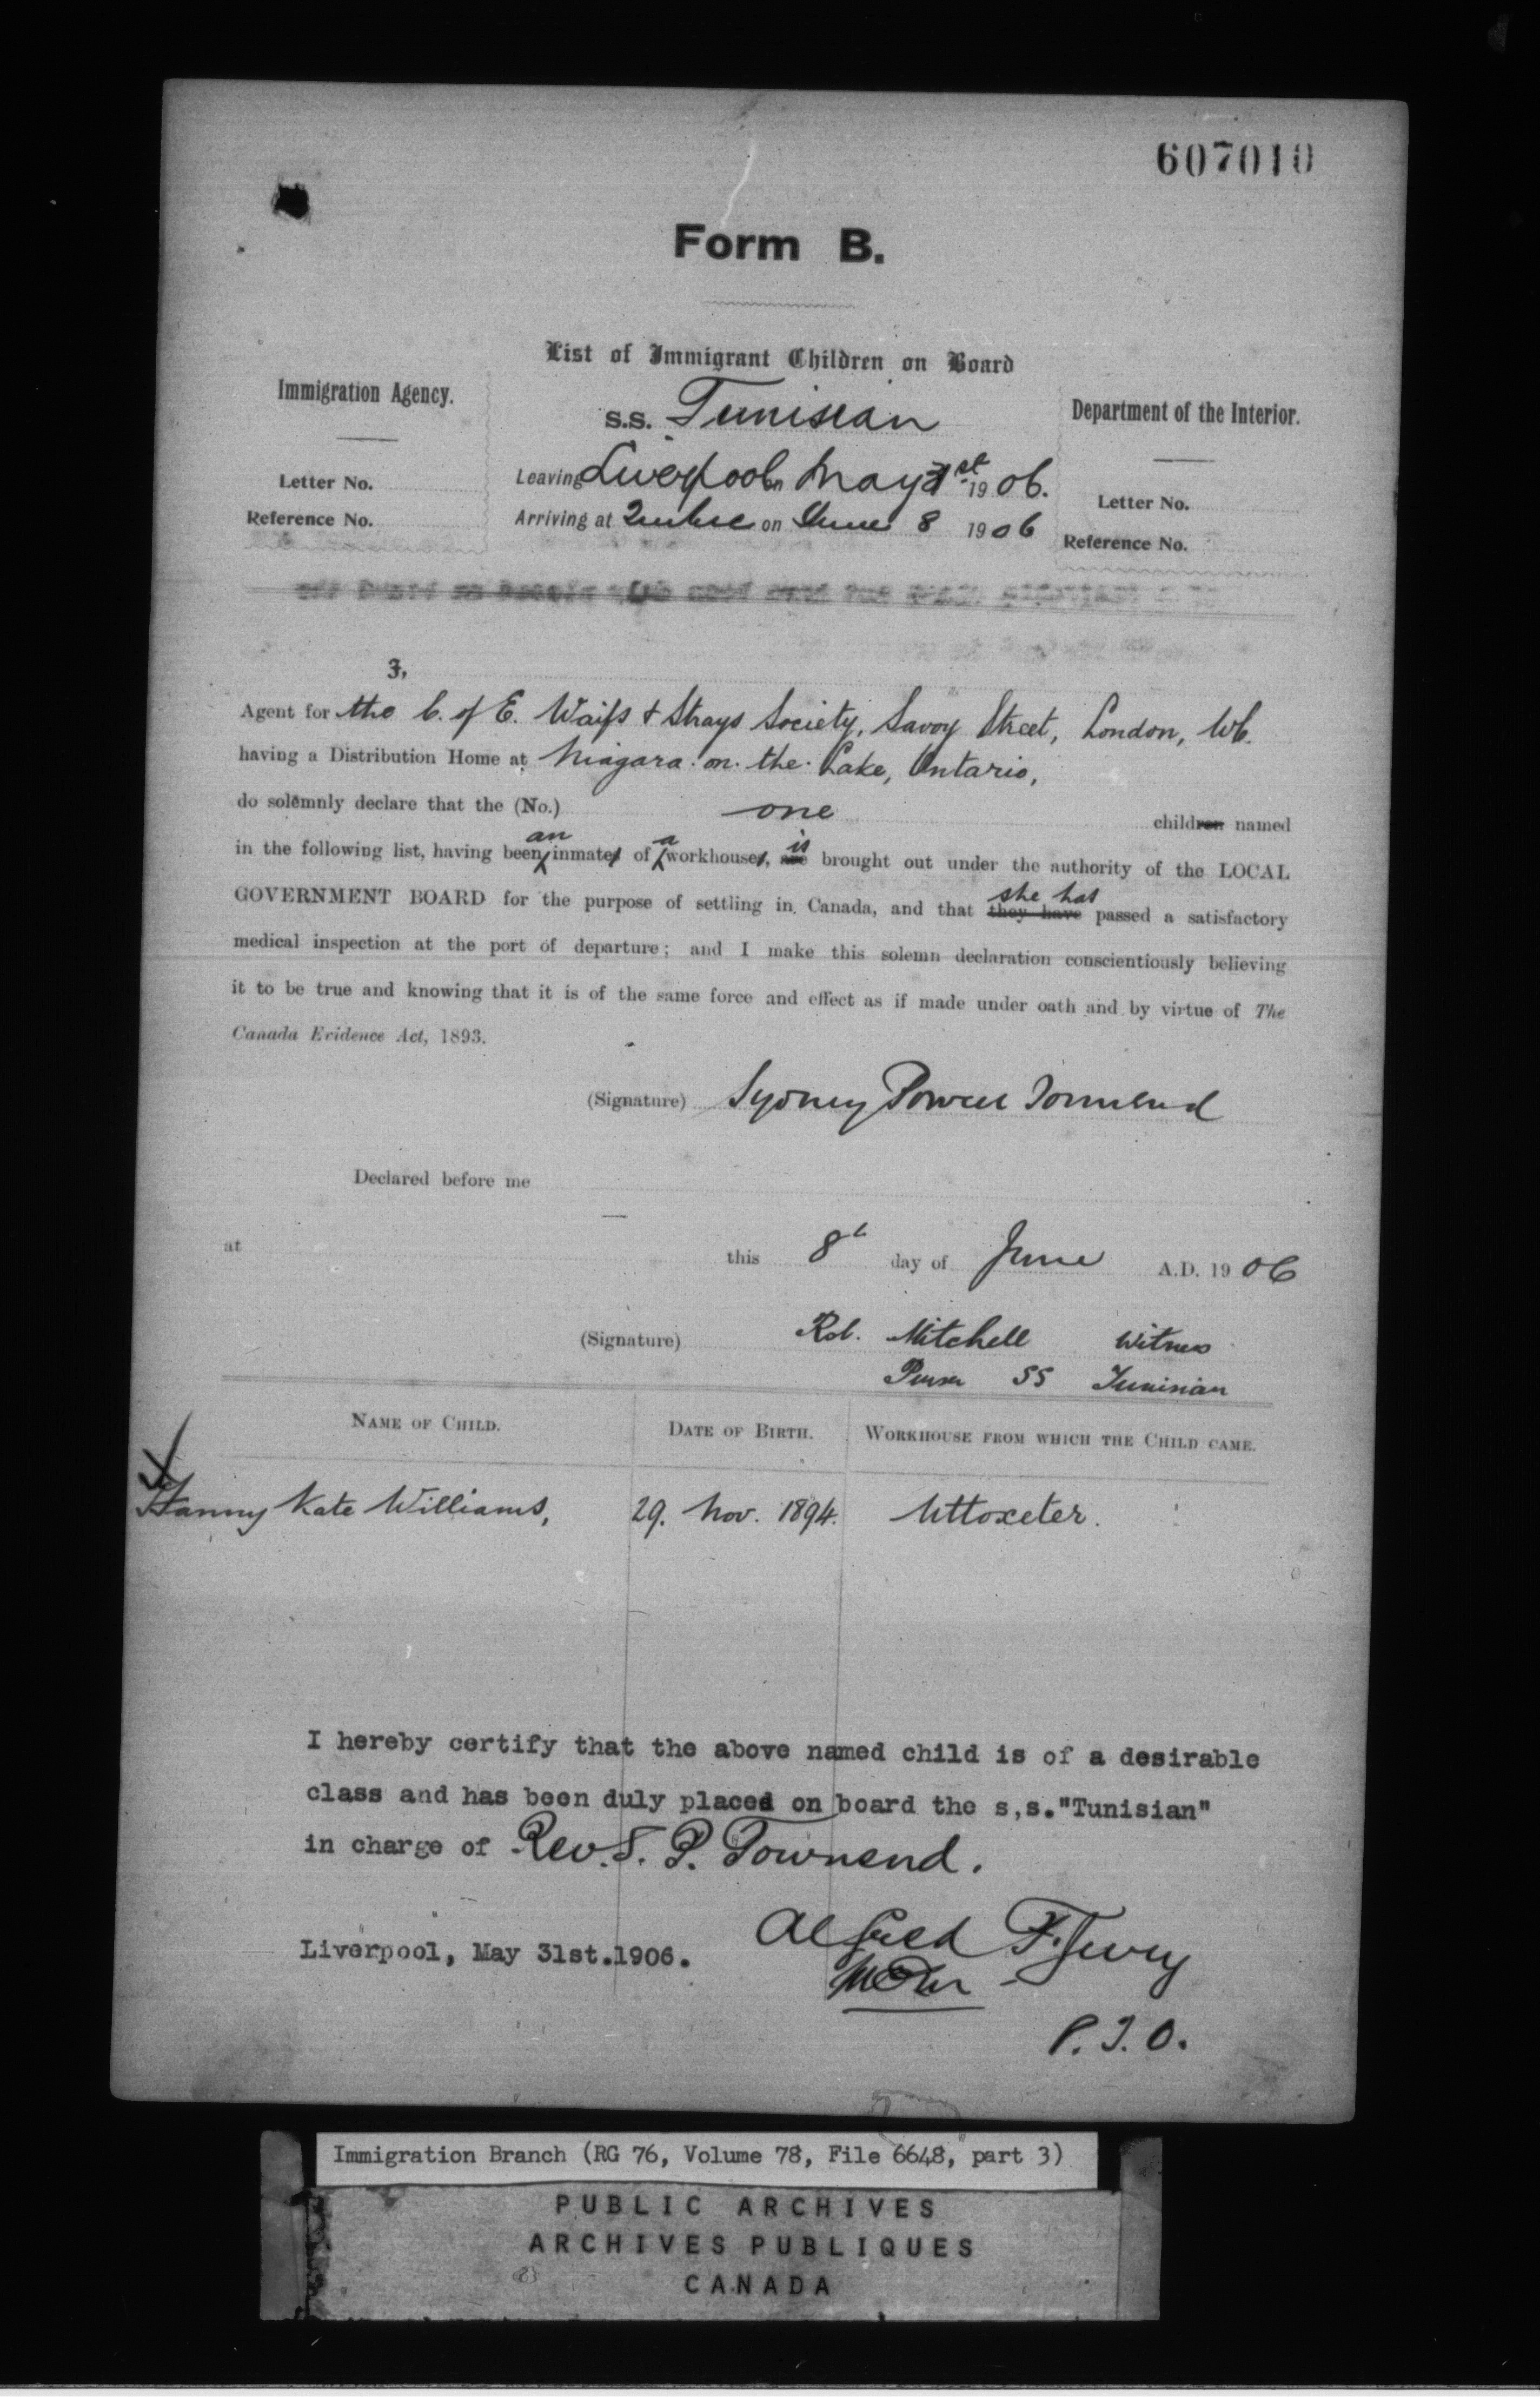 607010
Form B.
List of Immigrant Children on Board
Immigration Agency.
s.s. Tunisian
Department of the Interior.
Letter No.
Leaving Liverpool on May 31st 1906.
Letter No.
Reference No.
Arriving at Quebec on June 8 1906
Reference No.
3,
Agent for the C. of E. Waifs & Strays Society, Savoy Street, London, WC.
having a Distribution Home at Niagara. on. the. Lake, Ontario,
do solemnly declare that the (No.) one children named
in the following list, having been an inmates of a workhouses, are is brought out under the authority of the LOCAL
GOVERNMENT BOARD for the purpose of settling in Canada, and that they have she has passed a satisfactory
medical inspection at the port of departure; and I make this solemn declaration conscientiously believing
it to be true and knowing that it is of the same force and effect as if made under oath and by virtue of The
Canada Evidence Act, 1893.
(Signature) Sydney Powell Townend
Declared before me
at this 8th day of June A.D. 1906
(Signature) Rob. Mitchell Witness
Purser SS Tunisian
NAME OF CHILD. DATE OF BIRTH. WORKHOUSE FROM WHICH THE CHILD CAME.
Fanny Kate Williams, 29. Nov. 1894. Uttoxeter.
I hereby certify that the above named child is of a desirable
class and has been duly placed on board the s,s."Tunisian"
in charge of Rev. S. P. Townend.
Liverpool, May 31st.1906. Alfred F. Jury
P.T.O.
Immigration Branch (RG 76, Volume 78, File 6648, part 3)
PUBLIC ARCHIVES
ARCHIVES PUBLIQUES
CANADA